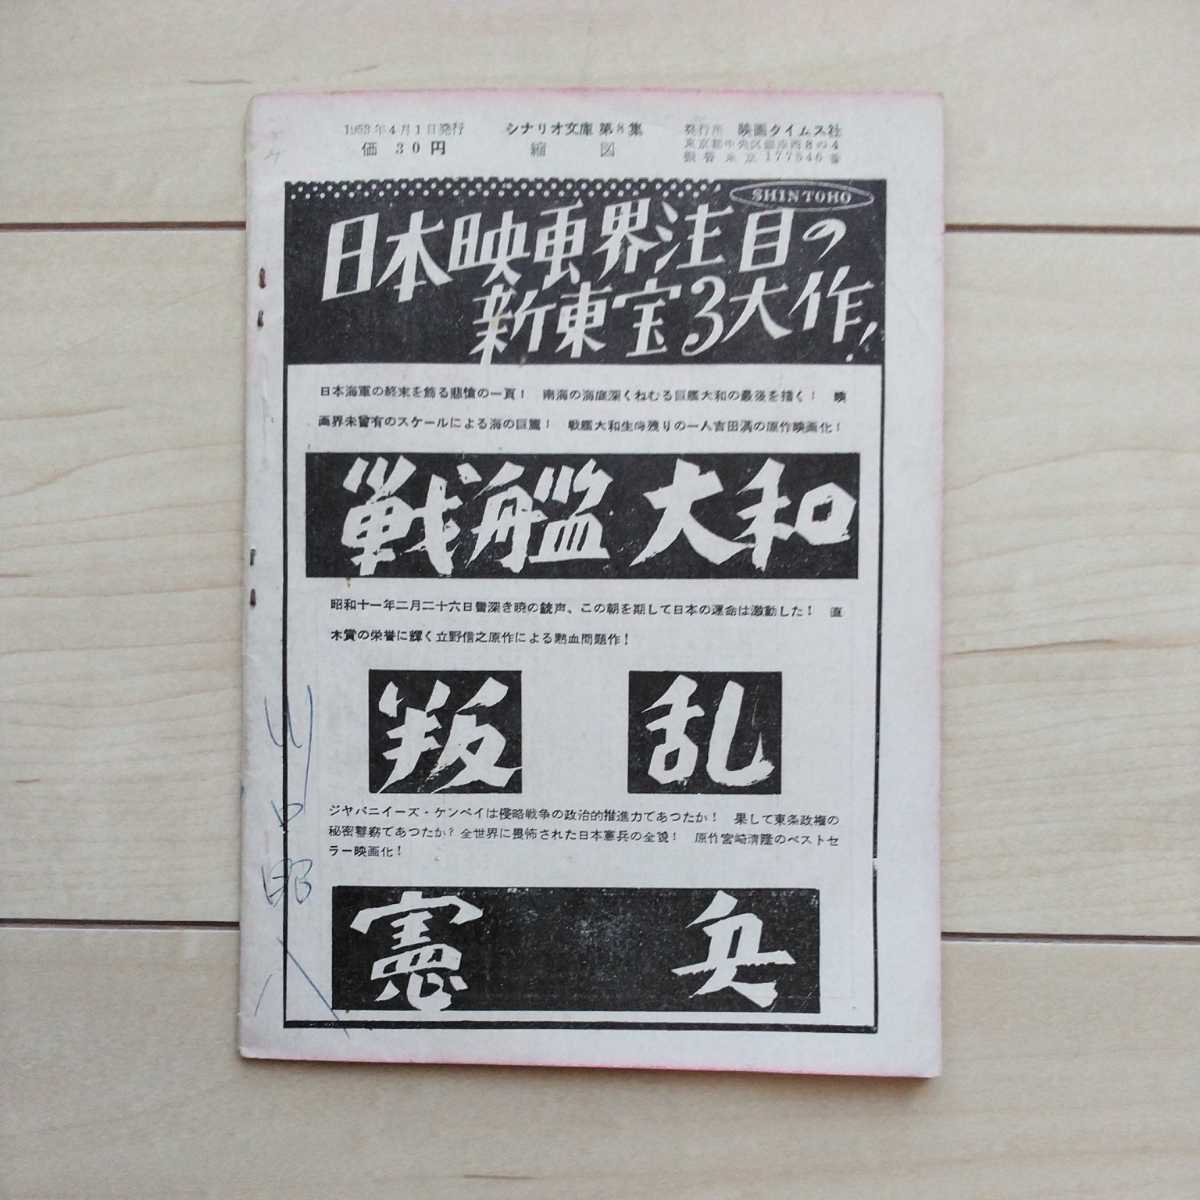 1953年4月1日発行
価 30円
シナリオ文庫 第8集
縮 図
発行所 映画タイムス社
東京都中央区銀座西8の4
振替東京177546番
SHINTOHO
日本映画界注目の
新東宝3大作!
日本海軍の終末を飾る悲愴の一頁! 南海の海底深くねむる巨艦大和の最後を描く! 映
画界未曾有のスケールによる海の巨篇! 戦艦大和生き残りの一人吉田満の原作映画化!
戦艦大和
昭和十一年二月二十六日雪深き暁の銃声、この朝を期して日本の運命は激動した! 直
木賞の栄誉に輝く立野信之原作による熱血問題作!
叛乱
ジヤパニイーズ・ケンペイは侵略戦争の政治的推進力であつたか! 果して東条政権の
秘密警察であつたか? 全世界に畏怖された日本憲兵の全貌! 原作宮崎清隆のベストセ
ラー映画化!
憲兵
川口昭八